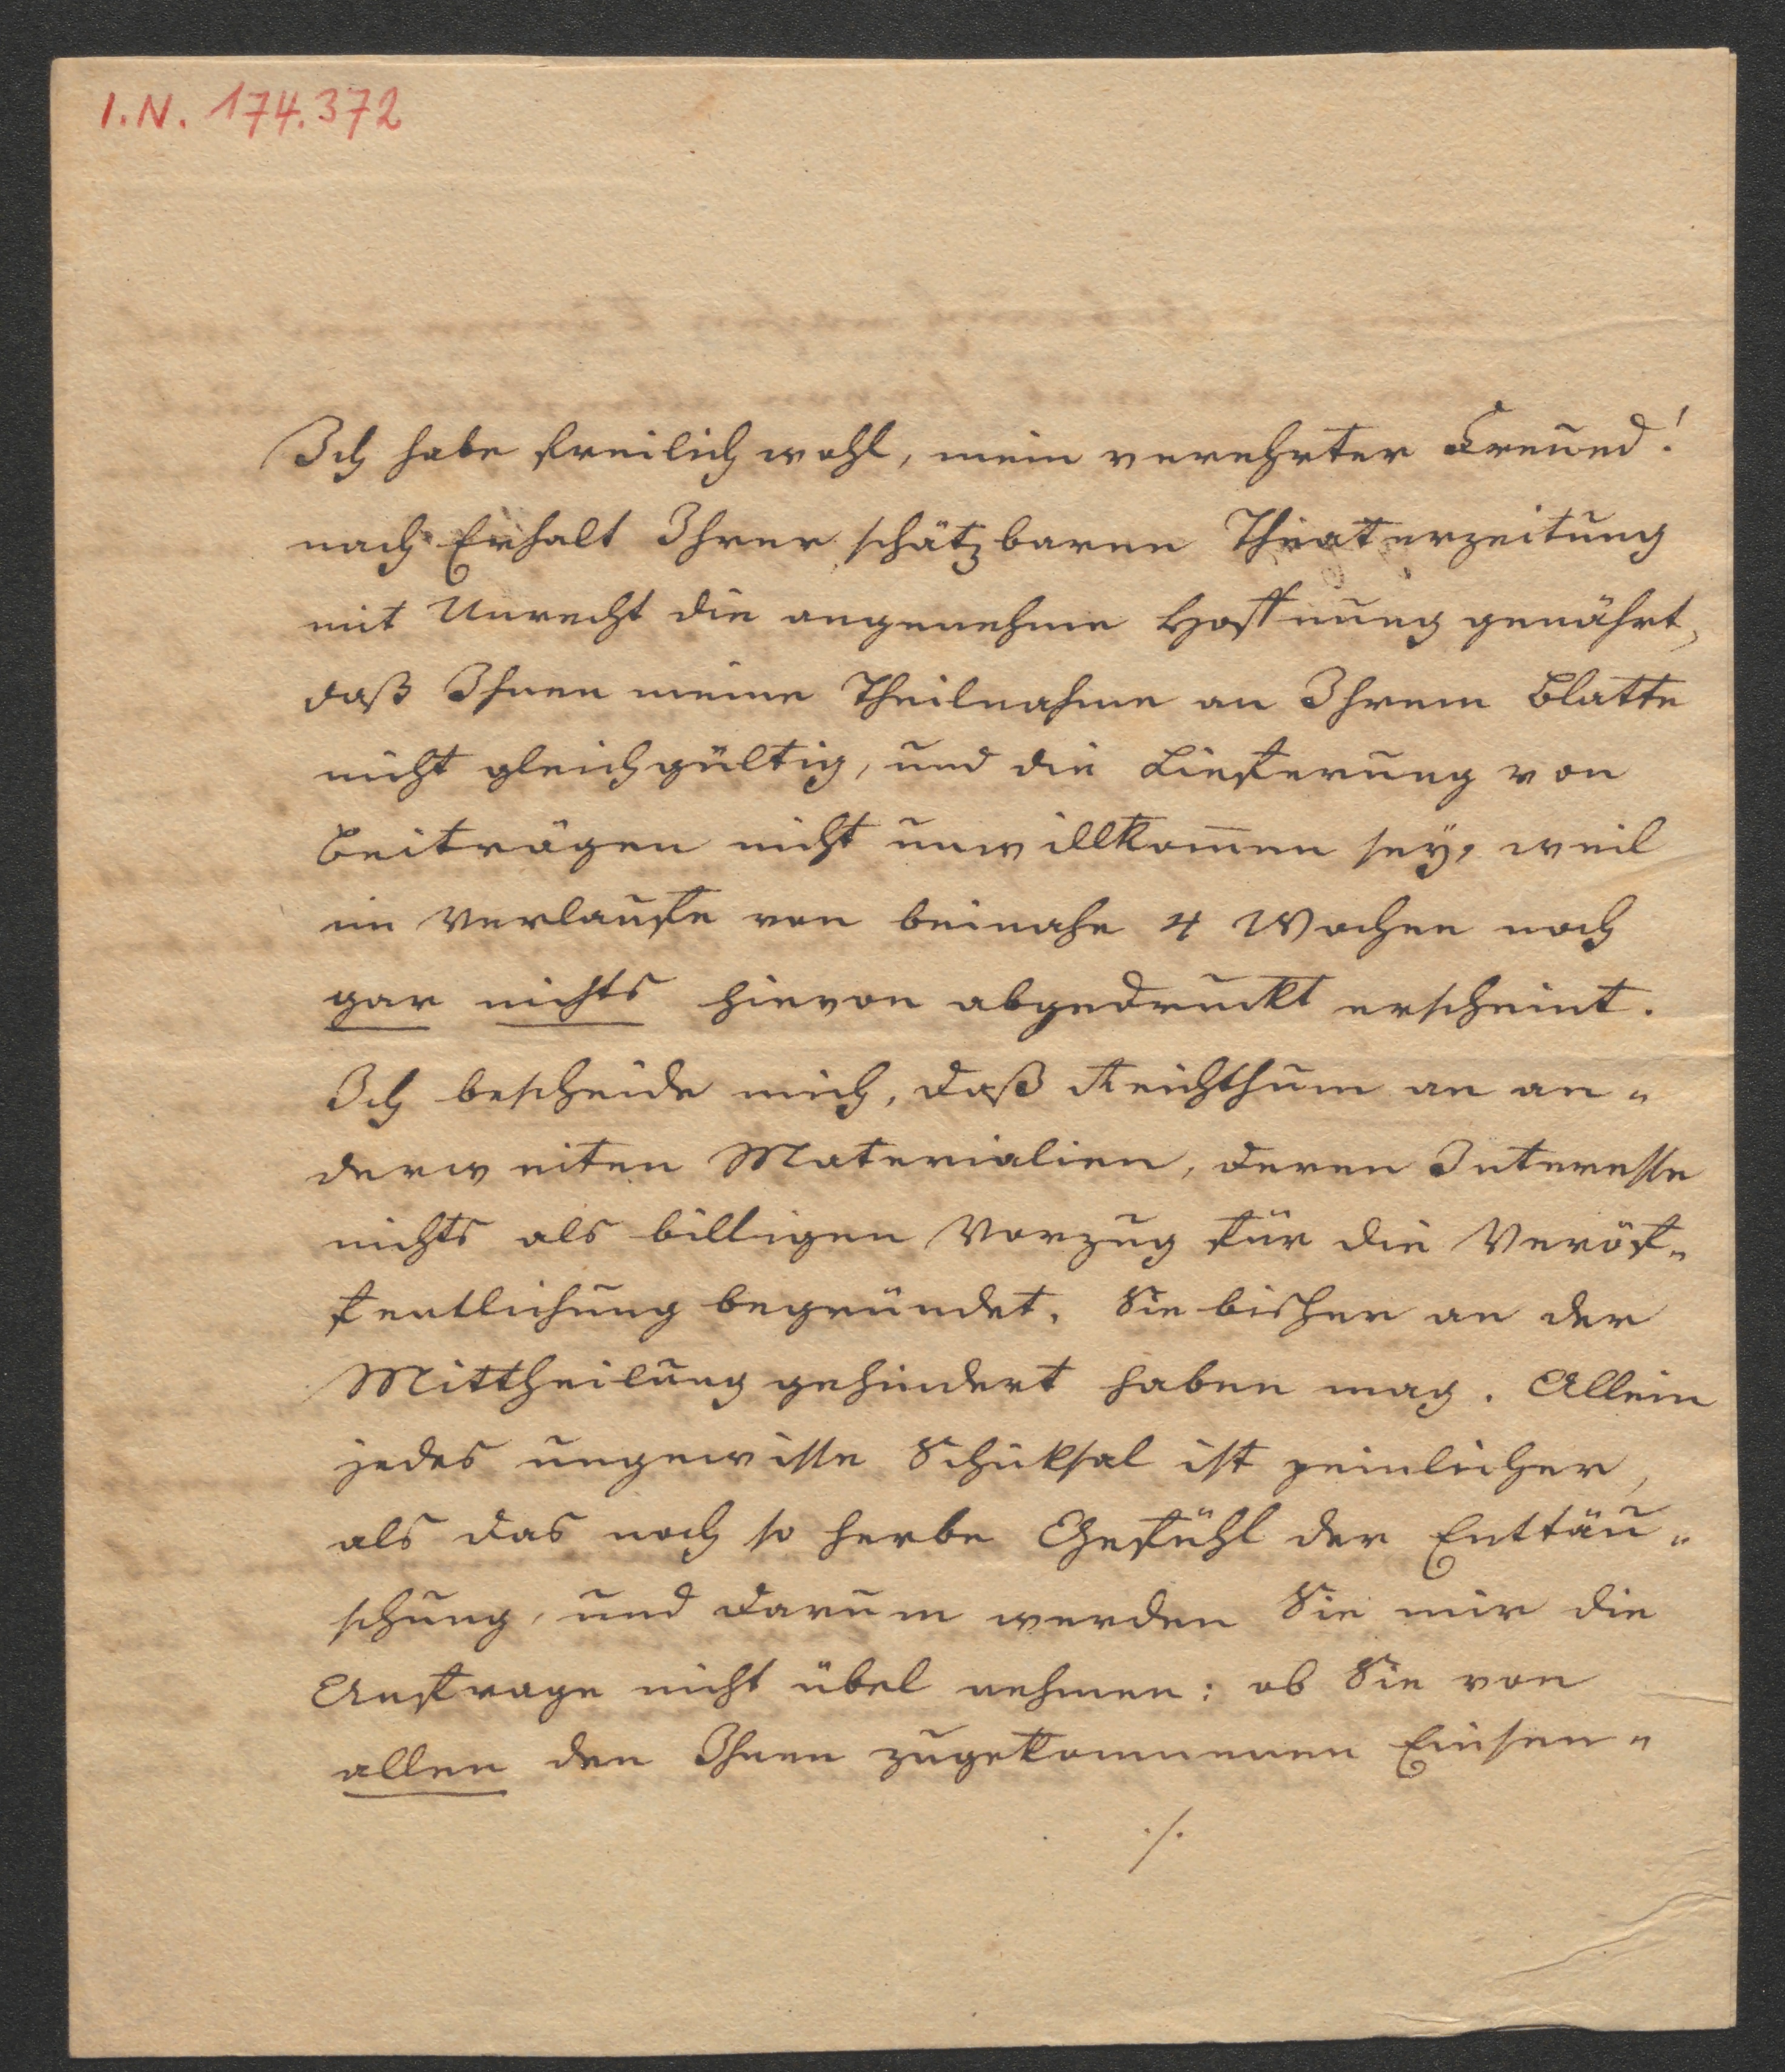 I.N. 174.372
Ich habe freilich wohl, mein verehrter Freund!
nach Erhalt Ihrer schätzbaren Theaterzeitung
mit Unrecht die angenehme Hoffnung genährt,
daß Ihnen meine Theilnahme an Ihrem Blatte
nicht gleichgültig, und die Lieferung von
Beiträgen nicht unwillkom̅en sey, weil
im Verlaufe von beinahe 4 Wochen noch
gar nichts hievon abgedruckt erscheint.
Ich bescheide mich, daß Reichthum an an„
derweiten Materialien, deren Interesse
nichts als billigen Vorzug für die Veröf„
fentlichung begründet, Sie bisher an der
Mittheilung gehindert haben mag. Allein
jedes ungewisse Schicksal ist peinlicher,
als das noch so herbe Gefühl der Enttäu„
schung, und darum werden Sie mir die
Anfrage nicht übel nehmen: ob Sie von
allen den Ihnen zugekommenen Einsen„
./.